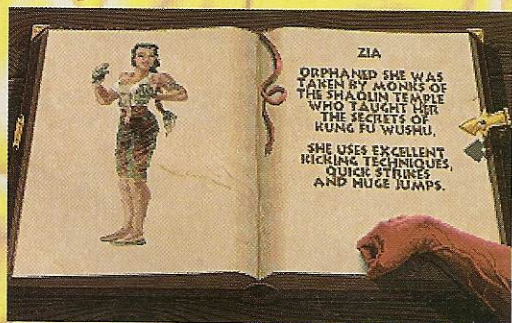 ZIA
ORPHANED SHE WAS
TAKEN BY MONKS OF
THE SHAOLIN TEMPLE
WHO TAUGHT HER
THE SECRETS OF
KUNG FU WUSHU,
SHE USES EXCELLENT
KICKING TECHNIQUES,
QUICK STRIKES
AND HUGE JUMPS.